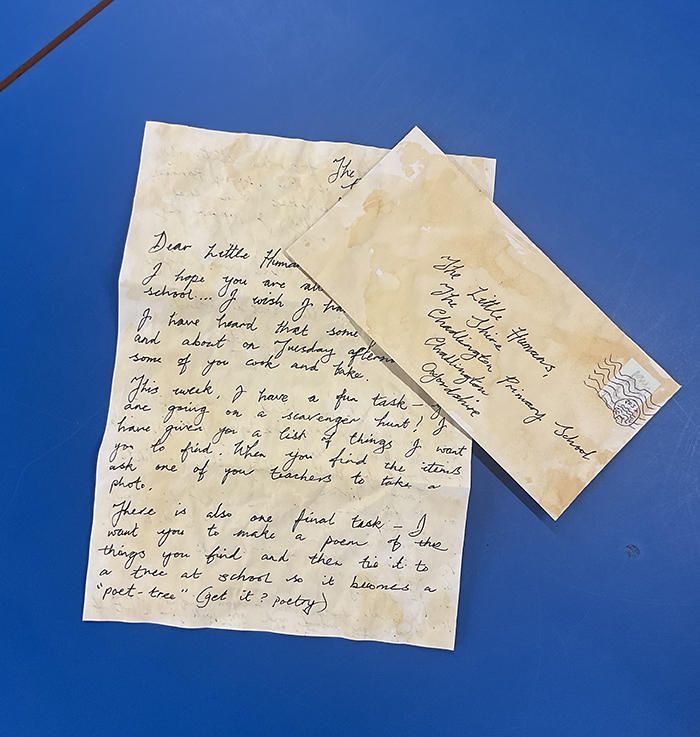 The
Dear Little Huma
I hope you are al
school... I wish I ha
I have heard that some
and about on Tuesday afterno
some of you cook and bake.
This week, I have a fun task – I
are going on a scavenger hunt! I
have given you a list of things I want
you to find. When you find the items
ask one of you teachers to take a
photo.
There is also one final task – I
want you to make a poem of the
things you find and then tie it to
a tree at school so it becomes a
"poet-tree" (get it? poetry)
The Little Humans,
The Shire
Chadlington Primary School
Chadlington
Oxfordshire